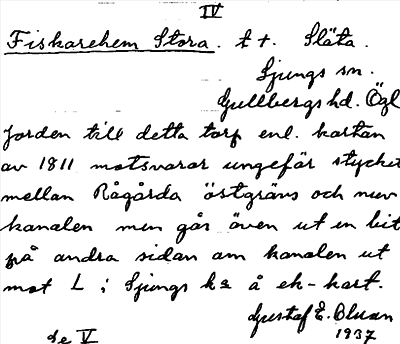 IV
Fiskarehem Stora. t t. Släta.
Ljungs sn.
Gullbergs hd. Ögl
Jorden till detta torp enl. kartan
av 1811 motsvarar ungefär stycket
mellan Rågårda östgräns och nuv
kanalen men går även ut en bit
på andra sidan om kanalen ut
mot L i Ljungs k a å ek-kart.
Gustaf E. Olsson
1937
de V